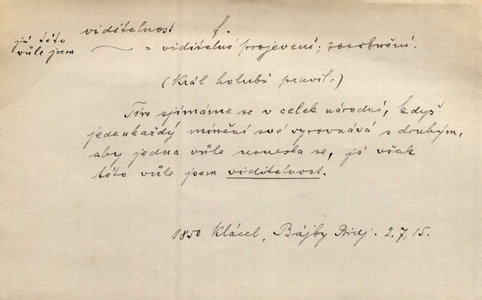 viditelnost f.
já této
vůle jsem
= viditelné projevení; zosobnění.
(Král holubů pravil:)
Tím sjímáme se v celek národní, když
jedenkaždý mínění své vyrovnává s druhým,
aby jedna vůle usnesla se, já však
této vůle jsem viditelnost.
1850 Klácel, Bájky Bidp. 2.7,15.